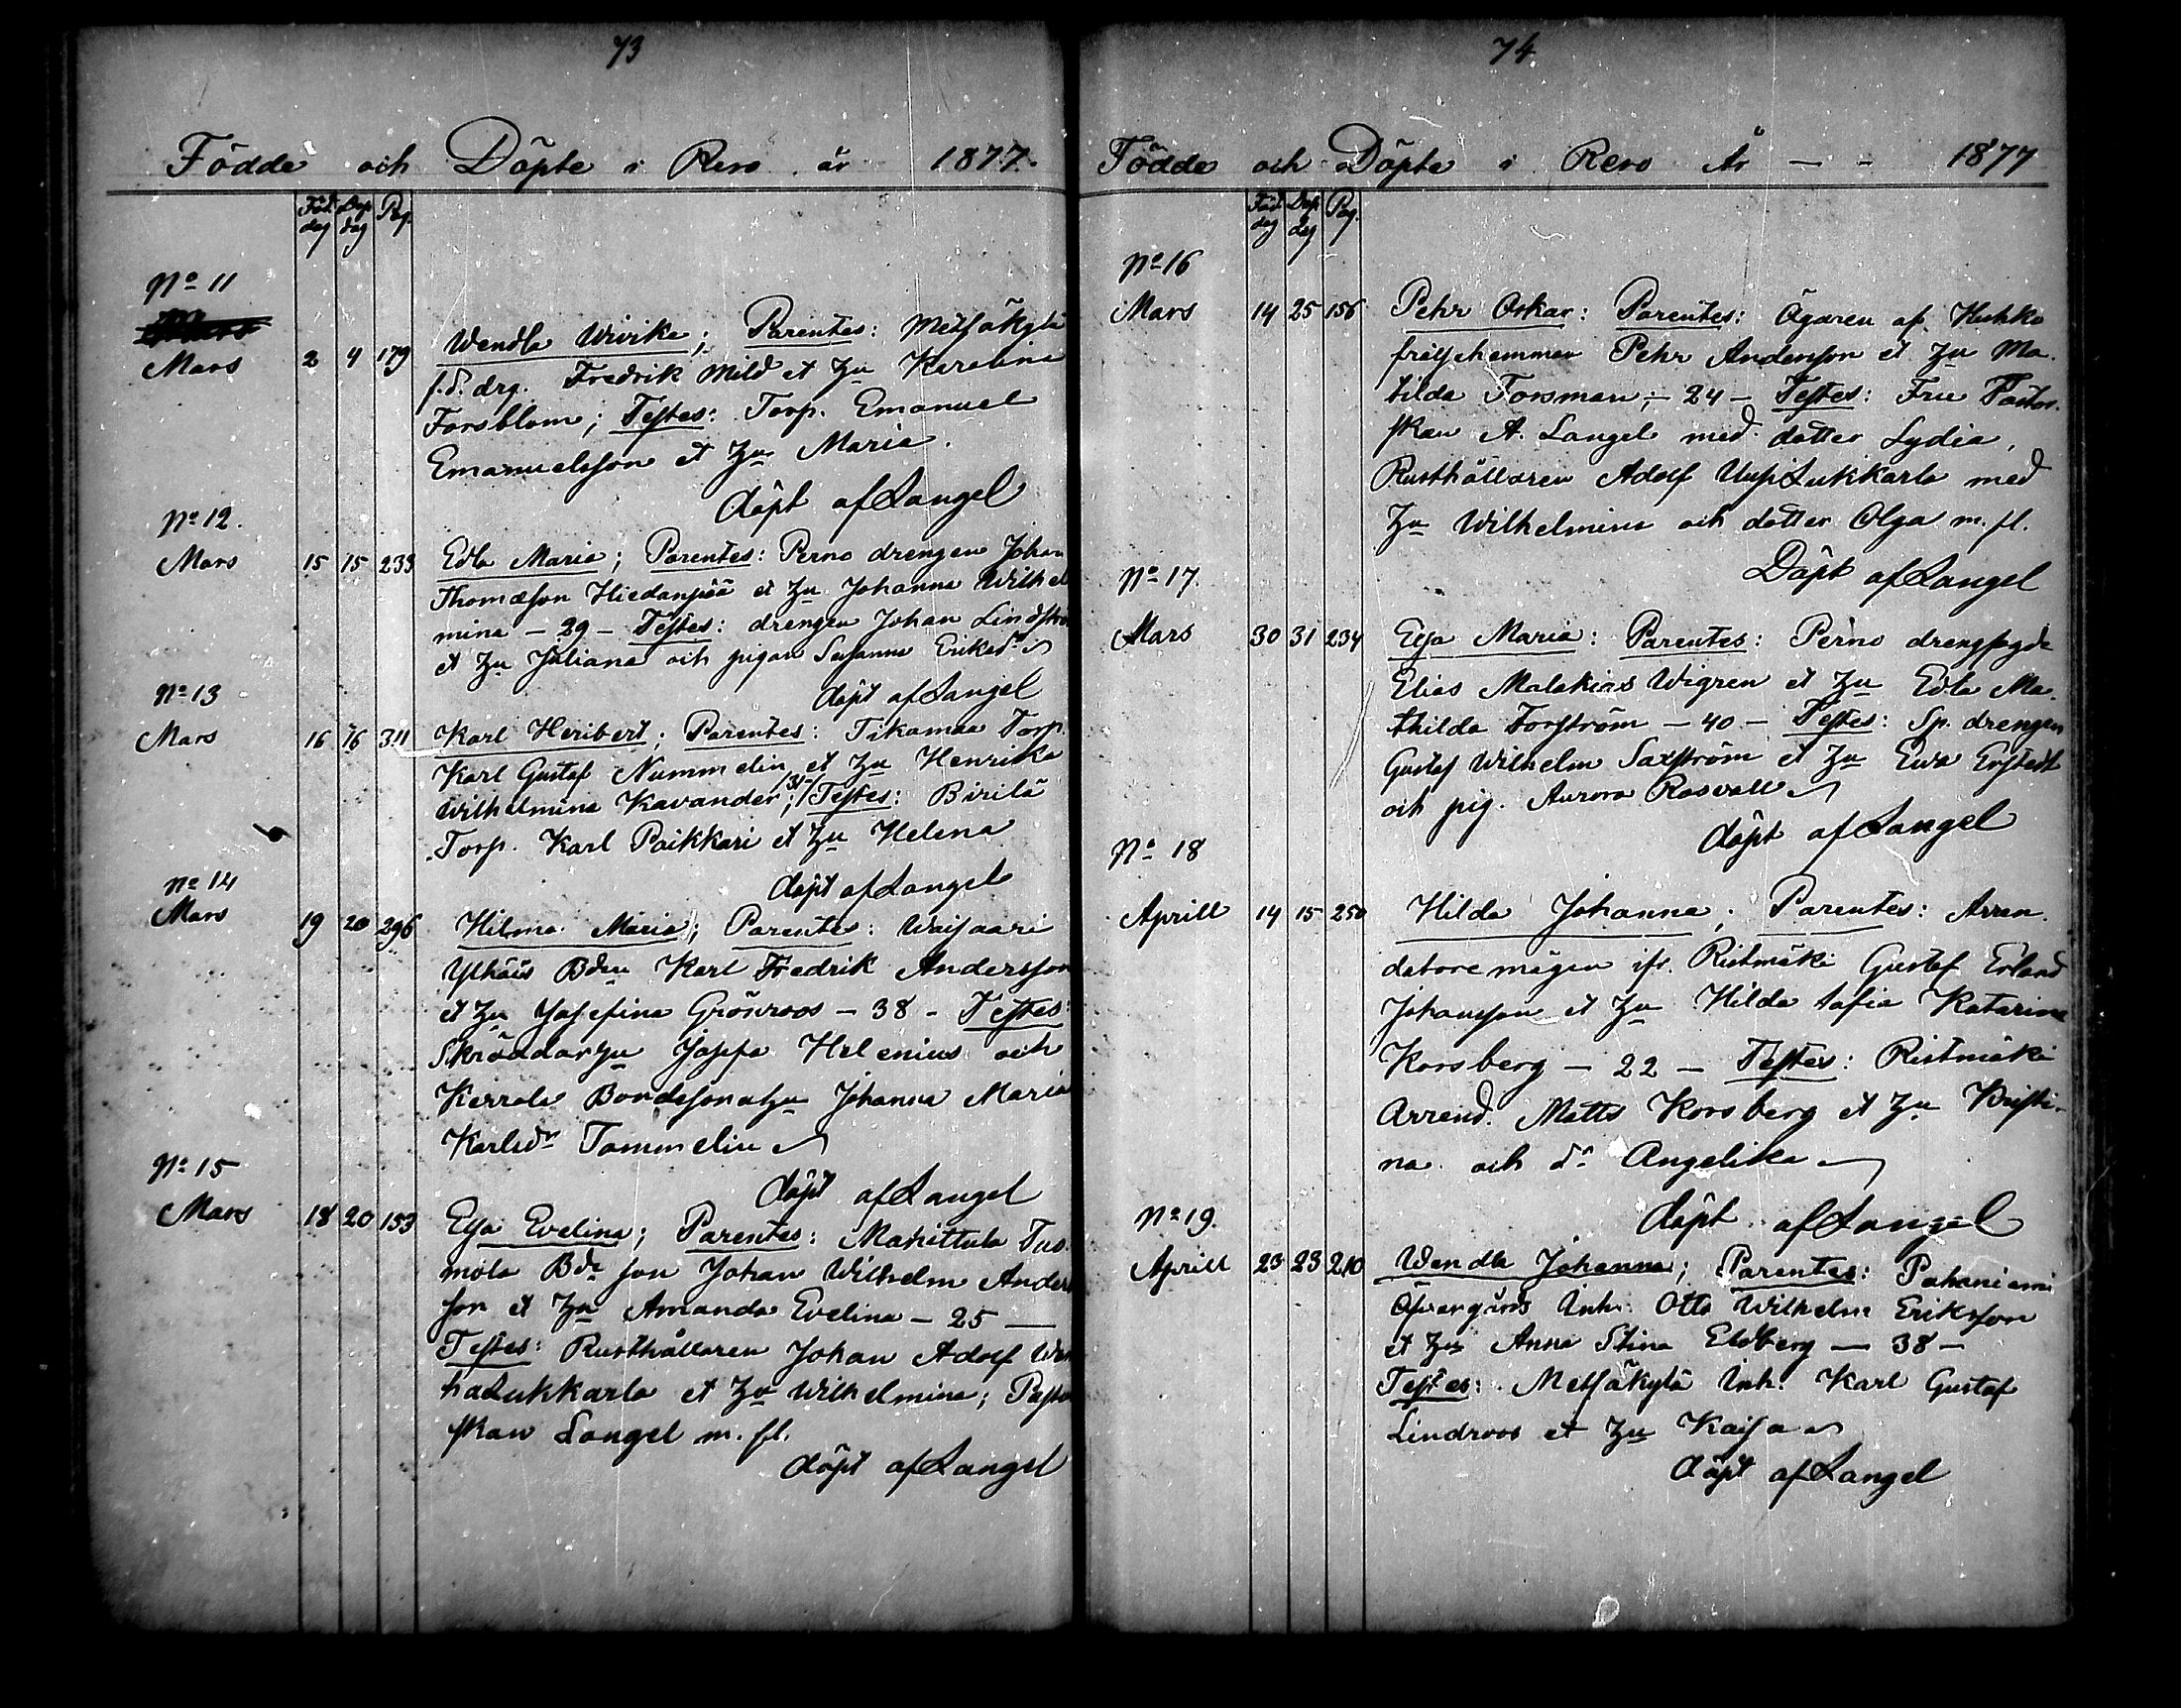 73
Födde och Döpte i Reso år 1877.
Föd. dag Dop dag Pag.
No 11
Mars 2 4 179 Wendla Ulrika; Parentes: Metsäkylä
f.d. drg. Fredrik Mild et Hu Karolina
Forsblom; Testes: Torp. Emanuel
Emanuelsson et Hu Maria.
döpt af Langel
No 12.
Mars 15 15 233 Edla Maria; Parentes: Perno drengen Johan
Thomasson Hiedanpää et Hu Johanna Wilhel
mina – 29 – Testes: drengen Johan Lindströ
et Hu Juliana och pigan Susanna Eriksdr
döpt af Langel
No 13
Mars 16 16 311 Karl Heribert; Parentes: Tikamaa Torp.
Karl Gustaf Nummelin et Hu Henrika
Wilhelmina Kavander; /31/ Testes: Birilä
Torp. Karl Paikkari et Hu Helena
döpt af Langel
No 14
Mars 19 20 296 Hilma Maria; Parentes: Waisaari
Ylhäis Bden Karl Fredrik Andersson
et Hu Josefina Grönroos – 38 – Testes:
Skräddarhu Helenius och
Kerrola Bondesonahu Johanna Maria
Karlsdr Tammelin
döpt af Langel
No 15
Mars 18 20 153 Eva Evelina; Parentes: Mahittula
mola Bde son Johan Wilhelm Anders
son et Hu Amanda Evelina – 25 –
Testes: Rusthållaren Johan Adolf Wan
haLukkarla et Hu Wilhelmina; Pasto
skan Langel m. fl.
döpt af Langel
74
Födde och Döpte i Reso År – – 1877
Föd dag Dop dag Pag.
No 16
Mars 14 25 156 Pehr Oskar: Parentes: Ägaren af Kukko
frälsehemman Pehr Andersson et Hu Ma-
tilda Forsman; – 24 – Testes: Fru Pastor-
skan A. Langel med dotter Lydia,
Rusthållaren Adolf UusiLukkarla med
Hu Wilhelmina och dotter Olga m. fl.
Döpt af Langel
No 17
Mars 30 31 234 Eva Maria: Parentes: Perno
Elias Malakias Wigren et Hu Edla Ma-
thilda Forström – 40 – Testes: Sp. drengen
Gustaf Wilhelm Saxström et Hu Ewa
och pig. Aurora Rosvall
döpt af Langel
No 18
Aprill 14 15 250 Hilda Johanna; Parentes: Arren-
datoremågen ifr. Ristmäki Gustaf Erland
Johansson et Hu Hilda Sofia Katarina
Korsberg – 22 – Testes: Ristmäki
Arrend. Matts Korsberg et Hu Kristi-
na och dr Angelika
döpt af Langel
No 19.
Aprill 23 23 210 Wendla Johanna; Parentes: Pahaniemi
Öfvergårds Inh. Otto Wilhelm Eriksson
et Hu Anna Stina Eldberg – 38 –
Testes: Metsäkylä Inh. Karl Gustaf
Lindroos et Hu Kaisa
döpt af Langel